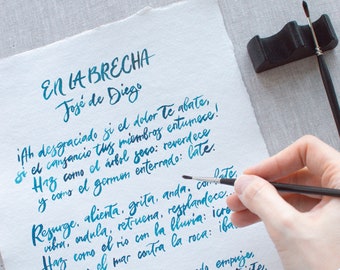 EN LA BRECHA
José de Diego
¡Ah desgraciado si el dolor te abate,
si el cansancio tus miembros entumece!
Haz como el árbol seco: reverdece
y como el germen enterrado: late.
Resurge, alienta, grita, anda, combate,
vibra, ondula, retruena, resplandece
Haz como el río con la lluvia:
el mar contra la roca:
empuje,